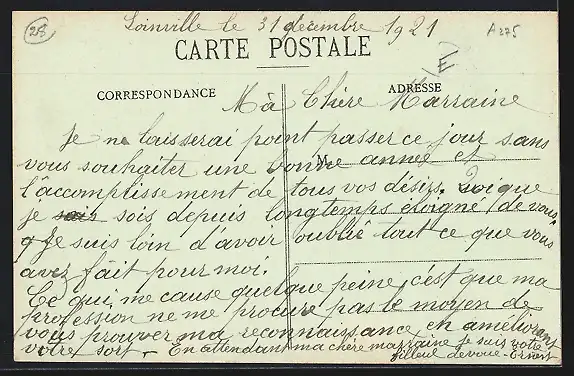 28
Loinville le 31 décembre 1921
A275
CARTE POSTALE
E
CORRESPONDANCE
ADRESSE
Mâ Chère Marraine
Je ne laisserai point passer ce jour sans
vous souhaiter une bonne année et
M
l'accomplissement de tous vos désirs. Quoique
je sois depuis longtemps éloigné de vous,
Je suis loin d'avoir oublié tout ce que vous
avez fâit pour moi.
Ce qui, me cause quelque peine, c'est que ma
profession ne me procure pas le moyen de
vous prouver ma reconnaissance, en améliorant
votre sort. En attendant ma chère marraine je suis votre
filleul dévoué Ernest